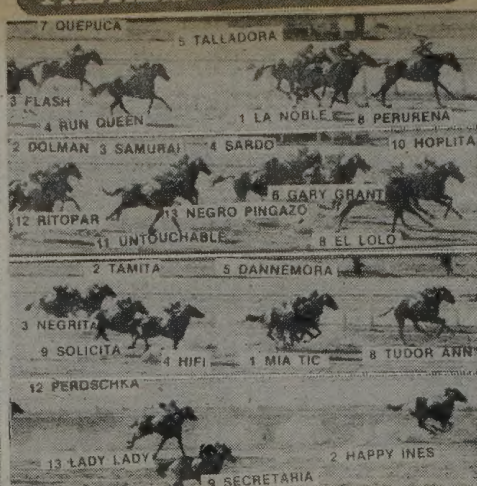 7 QUEPUCA
5 TALLADORA
3 FLASH
4 RUN QUEEN
1 LA NOBLE
8 PERURENA
2 DOLMAN 3 SAMURAI 4 SARDO 10 HOPLITA
6 GARY GRANT
12 RITOPAR
13 NEGRO PINGAZO
11 UNTOUCHABLE
8 EL LOLO
2 TAMITA 5 DANNEMORA
3 NEGRITA
9 SOLICITA
4 HIFI
1 MIA TIC
8 TUDOR ANN
12 PEROSCHKA
13 LADY LADY
2 HAPPY INES
9 SECRETARIA